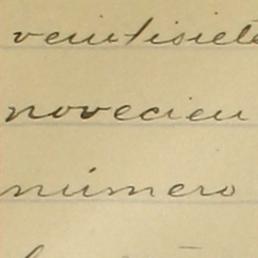 veintisiete
novecien
número